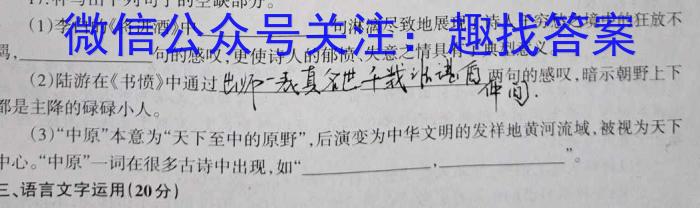 17.补写出下列句子的空缺部分。
(1)李白《将进酒》中“ 句淋漓尽致地展现了诗人 的狂放不
羁, 句的感叹,更使诗人的郁愤、失意之情具有了典型意义。
微信公众号关注:趣找答案
(2)陆游在《书愤》中通过出师一表真名世千载 两句的感叹,暗示朝野上下
仲间.
都是主降的碌碌小人。
(3)“中原”本意为“天下至中的原野”,后演变为中华文明的发祥地黄河流域,被视为天下
中心。“中原”一词在很多古诗中出现,如“ , ”。
三、语言文字运用(20分)